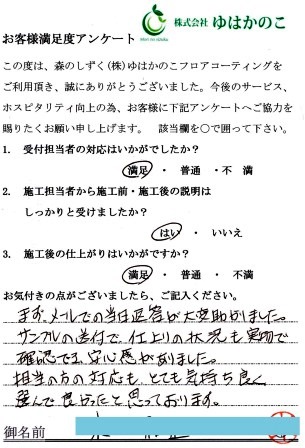 株式会社 ゆはかのこ
Mori no sizuku
お客様満足度アンケート
この度は、森のしずく(株)ゆはかのこフロアコーティングを
ご利用頂き、誠にありがとうございました。今後のサービス、
ホスピタリティ向上の為、お客様に下記アンケートへご協力を
賜りたくお願い申し上げます。 該当欄を○で囲って下さい。
1. 受付担当者の対応はいかがでしたか?
満足 ・ 普通 ・不 満
2. 施工担当者から施工前・施工後の説明は
しっかりと受けましたか?
はい ・ いいえ
3. 施工後の仕上がりはいかがですか?
満足 ・ 普通 ・ 不満
お気付きの点がございましたら、ご記入ください。
まず、メールでの当日返答が大変助かりました。
サンプルの送付で、仕上りの状況も実物で
確認でき、安心感がありました。
担当の方の対応も、とても気持ち良く
選んで良かったと思っております。
御名前